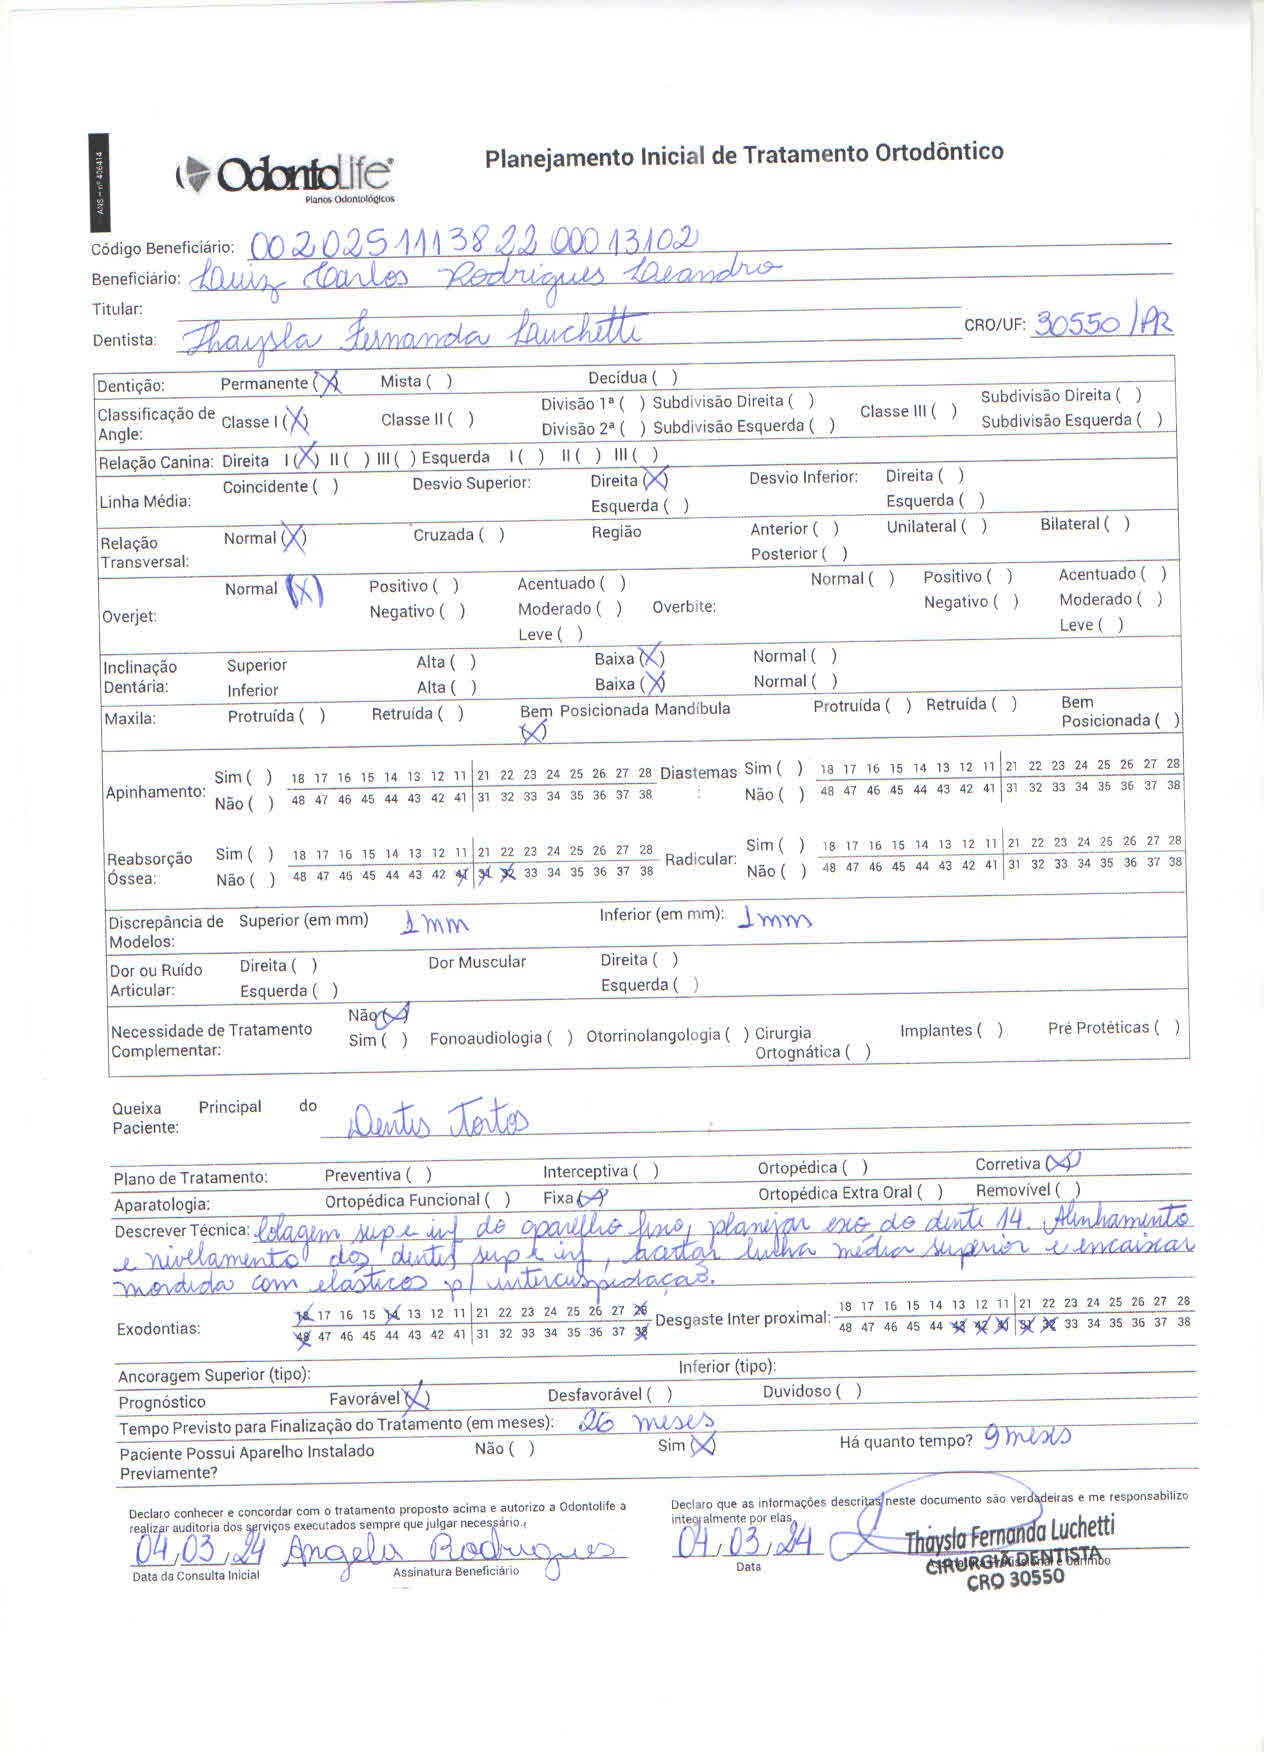 ANS - nº 406414
OdontoLife®
Planos Odontológicos
Planejamento Inicial de Tratamento Ortodôntico
Código Beneficiário: 00202511138220001 3102
Beneficiário: Luiz Carlos Rodrigues Leandro
Titular:
Dentista: Thaysla Fernanda Luchetti CRO/UF: 30550/PR
Dentição: Permanente (X) Mista ( ) Decídua ( )
Classificação de Angle: Classe I (X) Classe II ( ) Divisão 1ª ( ) Subdivisão Direita ( ) Classe III ( ) Subdivisão Direita ( )
Divisão 2ª ( ) Subdivisão Esquerda ( ) Subdivisão Esquerda ( )
Relação Canina: Direita I (X) II ( ) III ( ) Esquerda I ( ) II ( ) III ( )
Linha Média: Coincidente ( ) Desvio Superior: Direita (X) Desvio Inferior: Direita ( )
Esquerda ( ) Esquerda ( )
Relação Transversal: Normal (X) Cruzada ( ) Região Anterior ( ) Unilateral ( ) Bilateral ( )
Posterior ( )
Overjet: Normal (X) Positivo ( ) Acentuado ( ) Overbite: Normal ( ) Positivo ( ) Acentuado ( )
Negativo ( ) Moderado ( ) Negativo ( ) Moderado ( )
Leve ( ) Leve ( )
Inclinação Dentária: Superior Alta ( ) Baixa (X) Normal ( )
Inferior Alta ( ) Baixa (X) Normal ( )
Maxila: Protruída ( ) Retruída ( ) Bem Posicionada (X) Mandíbula Protruída ( ) Retruída ( ) Bem Posicionada ( )
Apinhamento: Sim ( ) 18 17 16 15 14 13 12 11 21 22 23 24 25 26 27 28 Diastemas: Sim ( ) 18 17 16 15 14 13 12 11 21 22 23 24 25 26 27 28
Não ( ) 48 47 46 45 44 43 42 41 31 32 33 34 35 36 37 38 Não ( ) 48 47 46 45 44 43 42 41 31 32 33 34 35 36 37 38
Reabsorção Óssea: Sim ( ) 18 17 16 15 14 13 12 11 21 22 23 24 25 26 27 28 Radicular: Sim ( ) 18 17 16 15 14 13 12 11 21 22 23 24 25 26 27 28
Não ( ) 48 47 46 45 44 43 42 41 31 32 33 34 35 36 37 38 Não ( ) 48 47 46 45 44 43 42 41 31 32 33 34 35 36 37 38
Discrepância de Modelos: Superior (em mm) 1mm Inferior (em mm): 1mm
Dor ou Ruído Articular: Direita ( ) Dor Muscular Direita ( )
Esquerda ( ) Esquerda ( )
Necessidade de Tratamento Complementar: Não (X)
Sim ( ) Fonoaudiologia ( ) Otorrinolangologia ( ) Cirurgia Ortognática ( ) Implantes ( ) Pré Protéticas ( )
Queixa Principal do Paciente: Dentes Tortos
Plano de Tratamento: Preventiva ( ) Interceptiva ( ) Ortopédica ( ) Corretiva (X)
Aparatologia: Ortopédica Funcional ( ) Fixa (X) Ortopédica Extra Oral ( ) Removível ( )
Descrever Técnica: Colagem sup e inf do aparelho fixo, planejar exo do dente 14. Alinhamento
e nivelamento dos dentes sup e inf, acertar linha média superior e encaixar
mordida com elásticos p/ intercuspidação.
Exodontias: 18 17 16 15 14 13 12 11 21 22 23 24 25 26 27 28 Desgaste Inter proximal: 18 17 16 15 14 13 12 11 21 22 23 24 25 26 27 28
48 47 46 45 44 43 42 41 31 32 33 34 35 36 37 38 48 47 46 45 44 43 42 41 31 32 33 34 35 36 37 38
Ancoragem Superior (tipo): Inferior (tipo):
Prognóstico Favorável (X) Desfavorável ( ) Duvidoso ( )
Tempo Previsto para Finalização do Tratamento (em meses): 26 meses
Paciente Possui Aparelho Instalado Previamente? Não ( ) Sim (X) Há quanto tempo? 9 meses
Declaro conhecer e concordar com o tratamento proposto acima e autorizo a Odontolife a
realizar auditoria dos serviços executados sempre que julgar necessário.
Declaro que as informações descritas neste documento são verdadeiras e me responsabilizo
integralmente por elas.
04/03/24 Angela Rodrigues 04/03/24
Data da Consulta Inicial Assinatura Beneficiário Data
Thaysla Fernanda Luchetti
CIRURGIÃ DENTISTA
CRO 30550